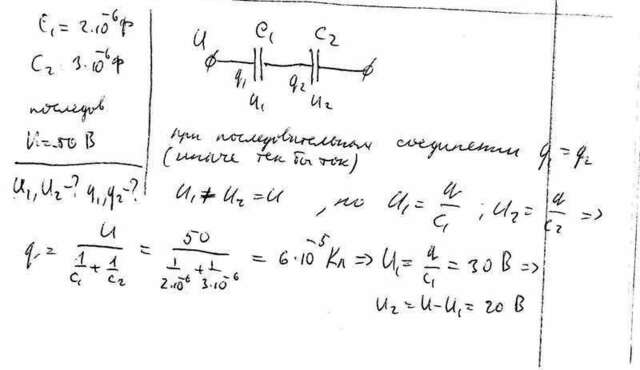 C₁ = 2·10⁻⁶ ф
C₂ = 3·10⁻⁶ ф
последов
U = 50 В
U₁, U₂ - ? q₁, q₂ - ?
U C₁ C₂
q₁ q₂
U₁ U₂
при последовательном соединении q₁ = q₂
(иначе тек бы ток)
U₁ + U₂ = U, но U₁ = q/C₁ ; U₂ = q/C₂ =>
q = U/(1/C₁ + 1/C₂) = 50/(1/2·10⁻⁶ + 1/3·10⁻⁶) = 6·10⁻⁵ Кл => U₁ = q/C₁ = 30 В =>
U₂ = U - U₁ = 20 В